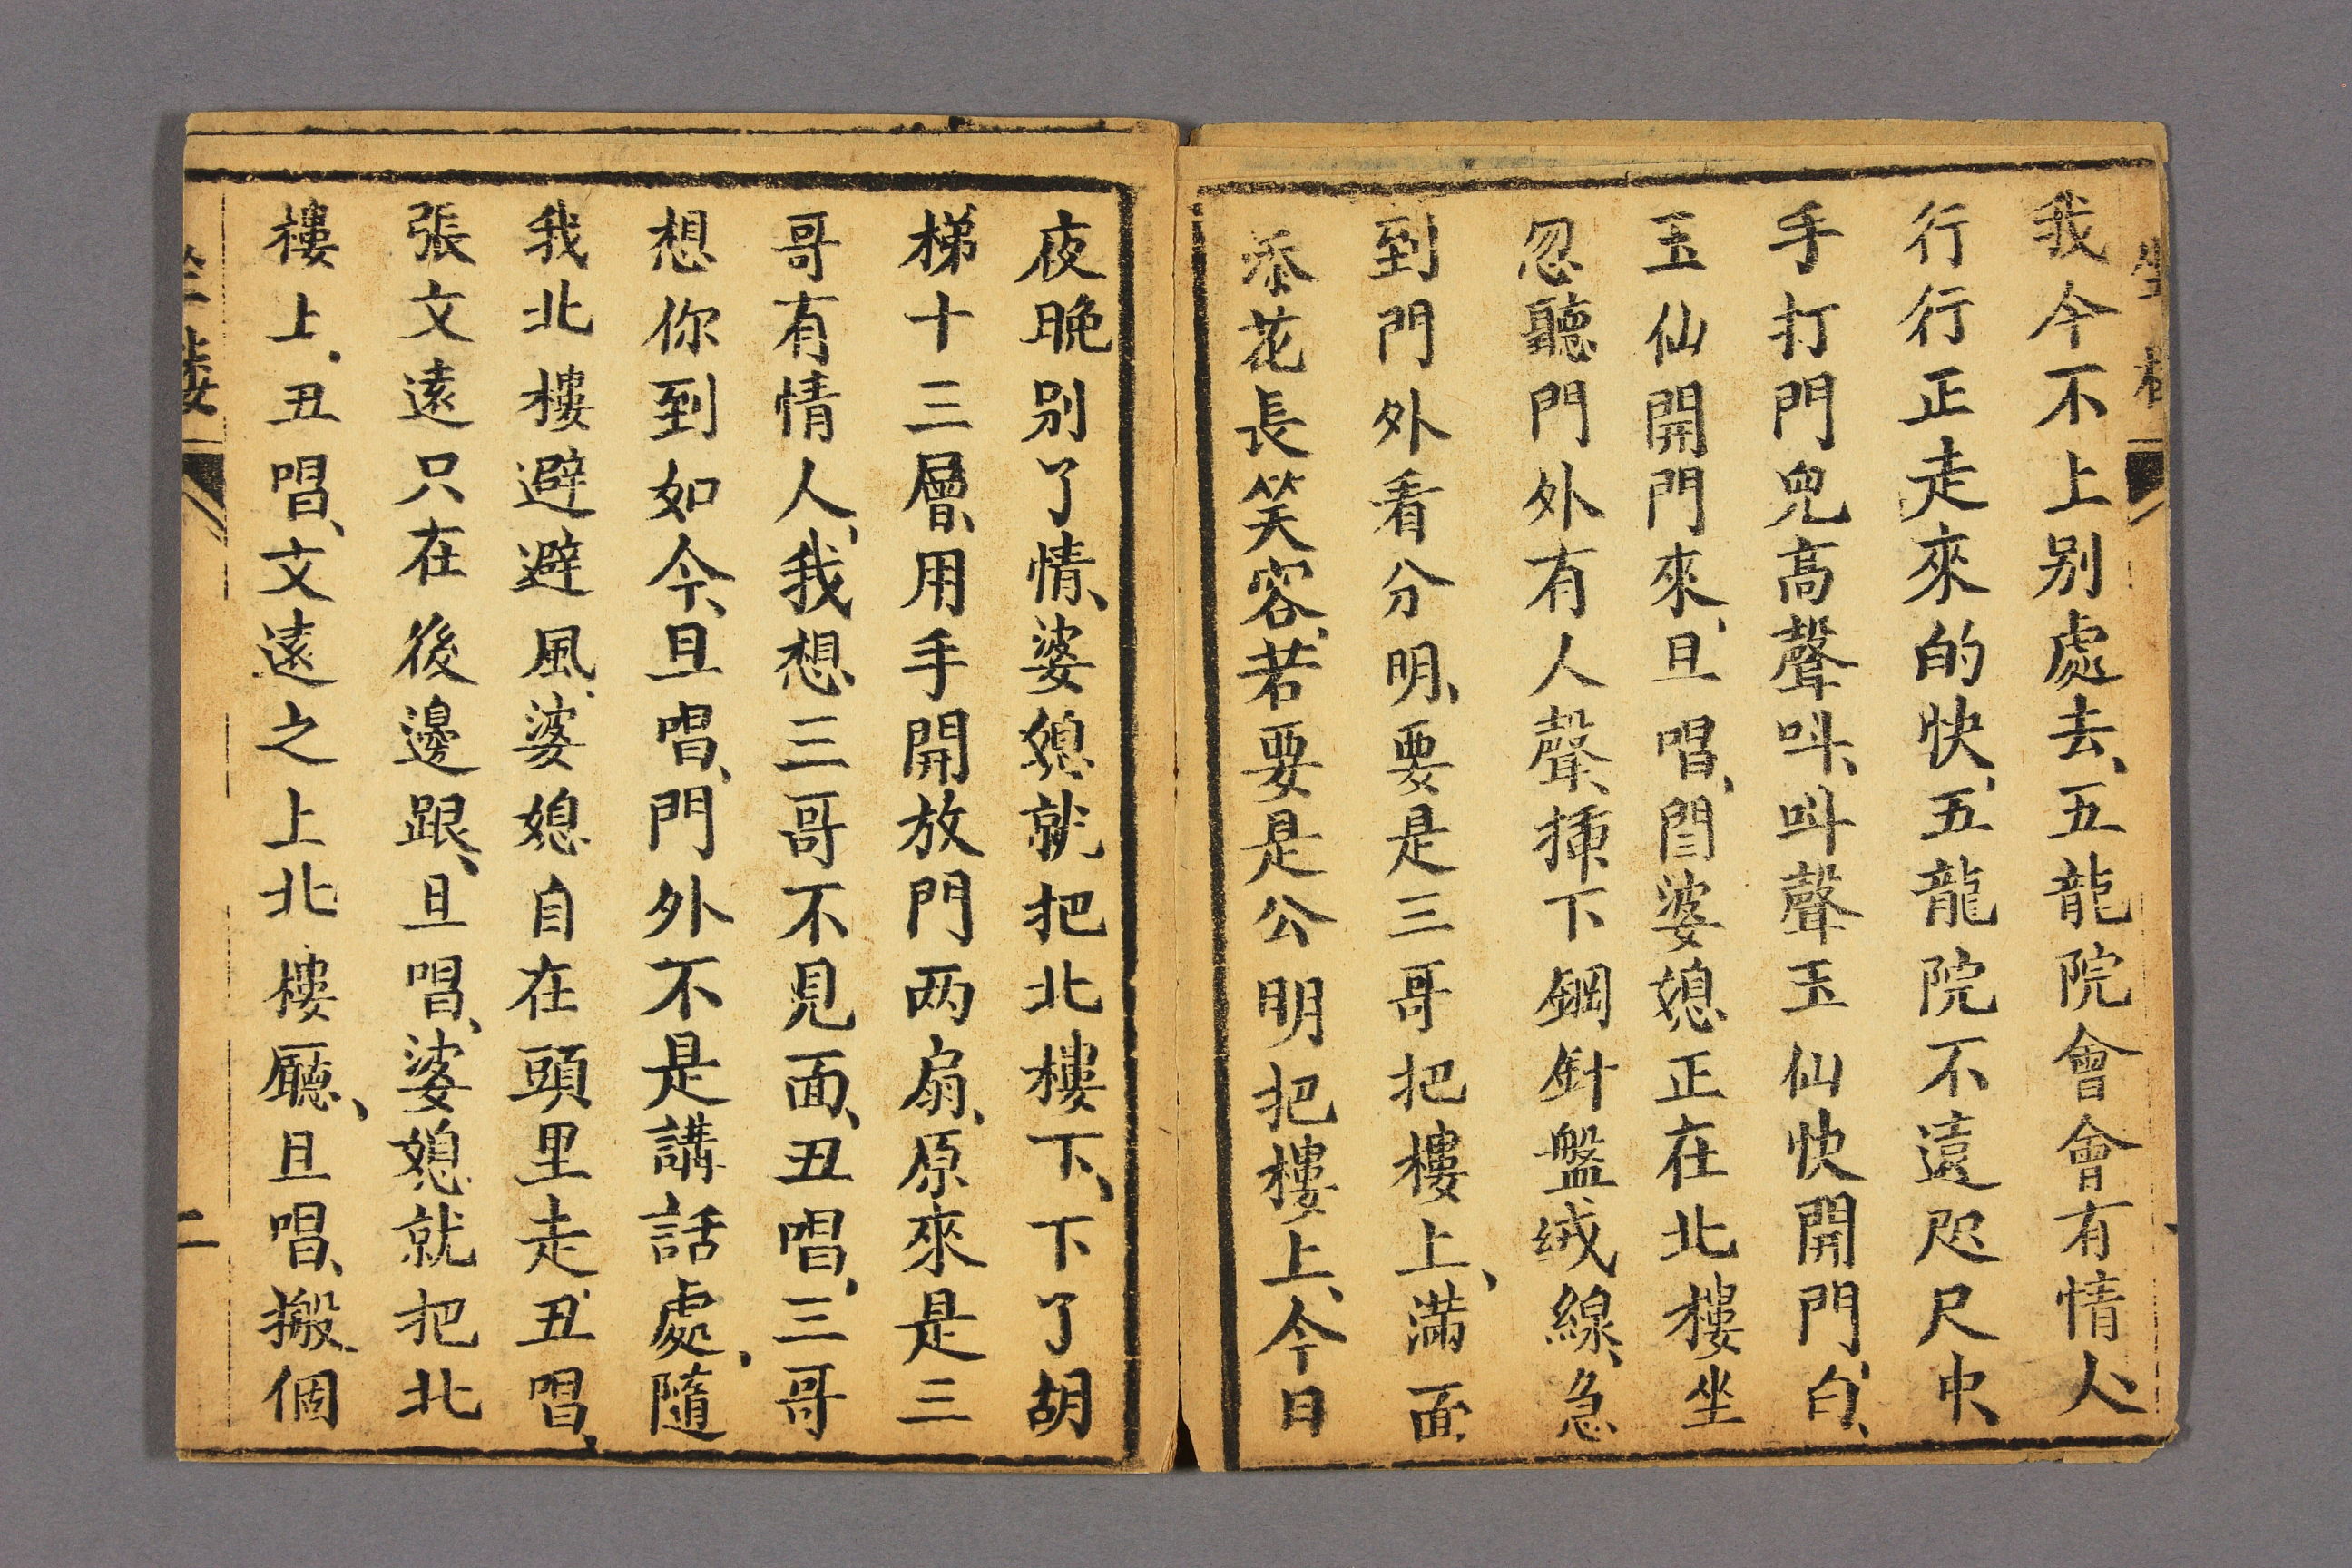 坐樓
我今不上别處去、五龍院會會有情人、
行行正走來的快、五龍院不遠咫尺中、
手打門兜高聲呌、呌聲玉仙快開門、白、
玉仙開門來、旦唱、閆婆媳正在北樓坐
忽聽門外有人聲、插下鋼針盤绒線、急
到門外看分明、要是三哥把樓上、滿面
添花長笑容、若要是公明把樓上、今日
夜晚别了情、婆媳就把北樓下、下了胡
梯十三層、用手開放門两扇、原來是三
哥有情人、我想三哥不見面、丑唱、三哥
想你到如今、旦唱、門外不是講話處、隨
我北樓避避風、婆媳自在頭里走、丑唱、
張文遠只在後邊跟、旦唱、婆媳就把北
樓上、丑唱、文遠之上北樓廳、旦唱、搬個
坐樓
二